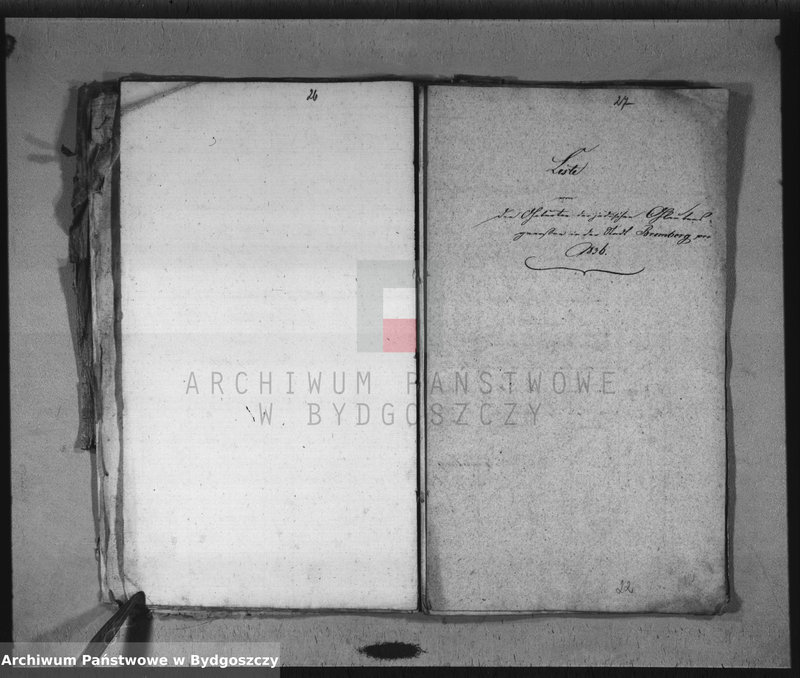 26
27
Liste
von
den Geburten der jüdischen Glaubens-
genossen in der Stadt Bromberg pro
1836.
ARCHIWUM PAŃSTWOWE
W BYDGOSZCZY
22
Archiwum Państwowe w Bydgoszczy